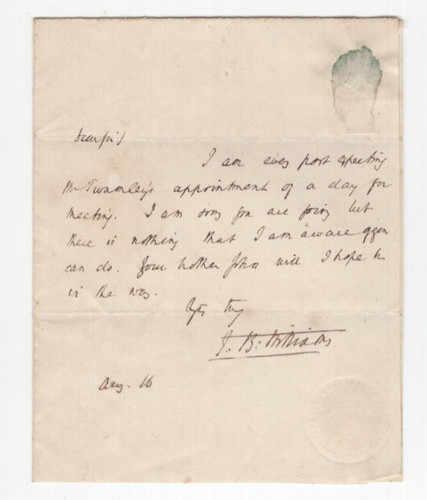 Dear Sir
I am every post expecting
Mr Twamley's appointment of a day for
meeting. I am sorry you are going but
there is nothing that I am aware of you
can do. Your brother John will I hope be
in the way.
Yrs truly
J. B. Williams
Aug. 16